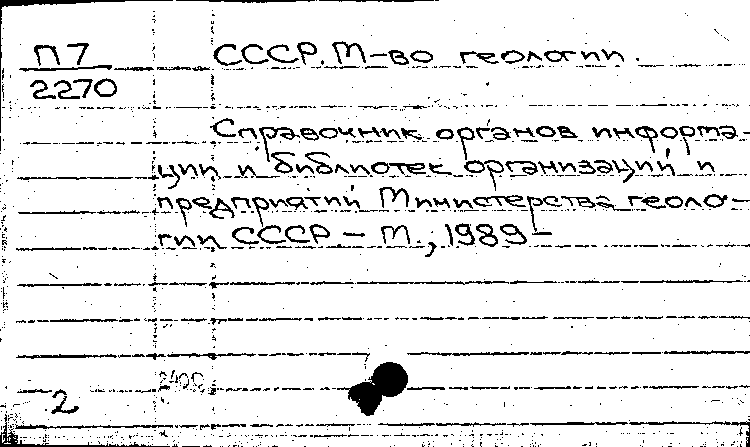 П7 СССР. М-во геологии.
2270
Справочник органов информа-
ции и библиотек организаций и
предприятий Министерства геоло-
гии СССР. – М., 1989 –
2